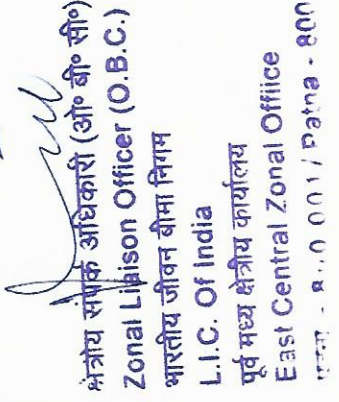 क्षेत्रीय संपर्क अधिकारी (ओ० बी० सी०)
Zonal Liaison Officer (O.B.C.)
भारतीय जीवन बीमा निगम
L.I.C. Of India
पूर्व मध्य क्षेत्रीय कार्यालय
East Central Zonal Offiice
800 001 / Patna - 800